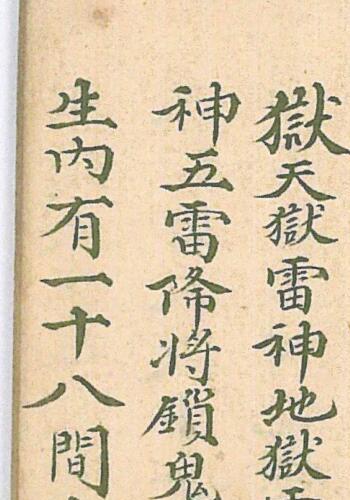 獄天獄雷神地獄
神五雷降将鎖鬼
生内有一十八間